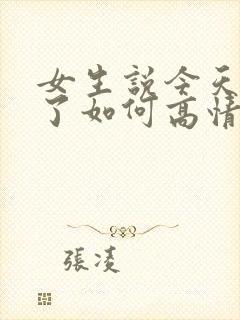 女生説今天
了如何高情
張凌